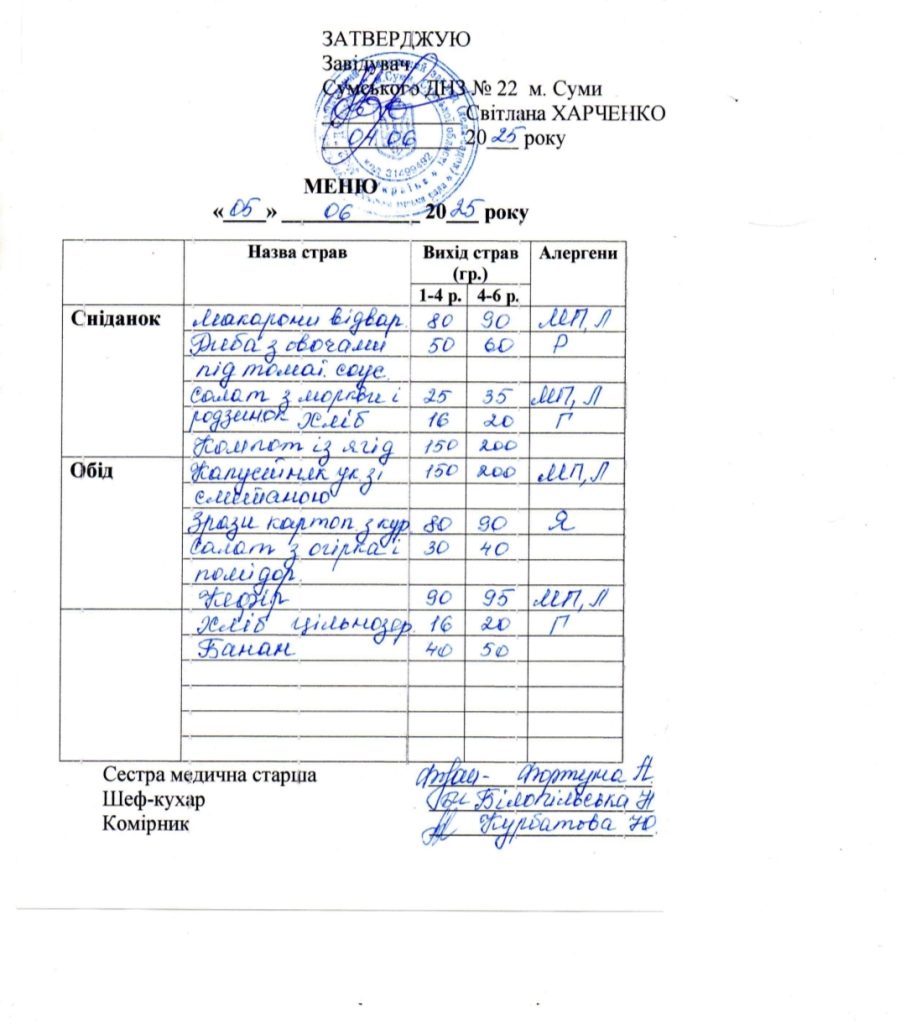 ЗАТВЕРДЖУЮ
Завідувач
Сумського ДНЗ № 22 м. Суми
Світлана ХАРЧЕНКО
04 06 2025 року
код 31499492
МЕНЮ
«05» 06 2025 року
Назва страв Вихід страв (гр.) Алергени
1-4 р. 4-6 р.
Сніданок Макарони відвар. 80 90 МП, Л
Риба з овочами 50 60 Р
під томат. соус.
Салат з моркви і 25 35 МП, Л
родзинок Хліб 16 20 Г
Компот із ягід 150 200
Обід Капустняк ук. зі 150 200 МП, Л
сметаною
Зрази картоп. з кур. 80 90 Я
Салат з огірка і 30 40
помідор.
Кефір 90 95 МП, Л
Хліб цільнозер. 16 20 Г
Банан 40 50
Сестра медична старша Фортуна А.
Шеф-кухар Білопільська Н
Комірник Курбатова Ю.